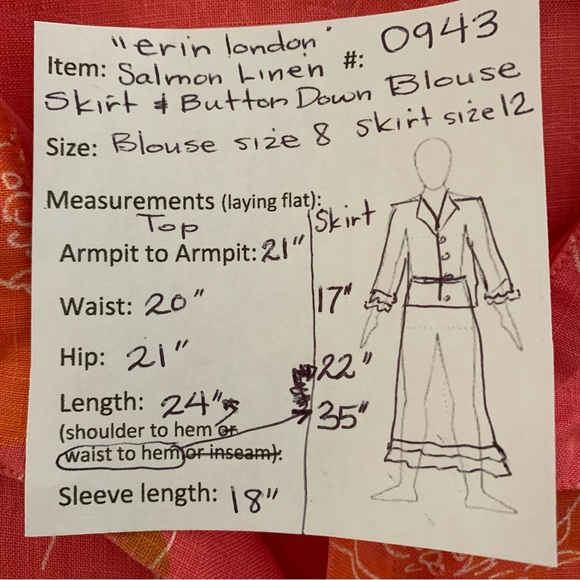 "erin london"
Item: Salmon Linen #: 0943
Skirt & Button Down Blouse
Size: Blouse size 8 skirt size 12
Measurements (laying flat):
Top Skirt
Armpit to Armpit: 21"
Waist: 20" 17"
Hip: 21" 22"
Length: 24" 35"
(shoulder to hem or
waist to hem or inseam):
Sleeve length: 18"